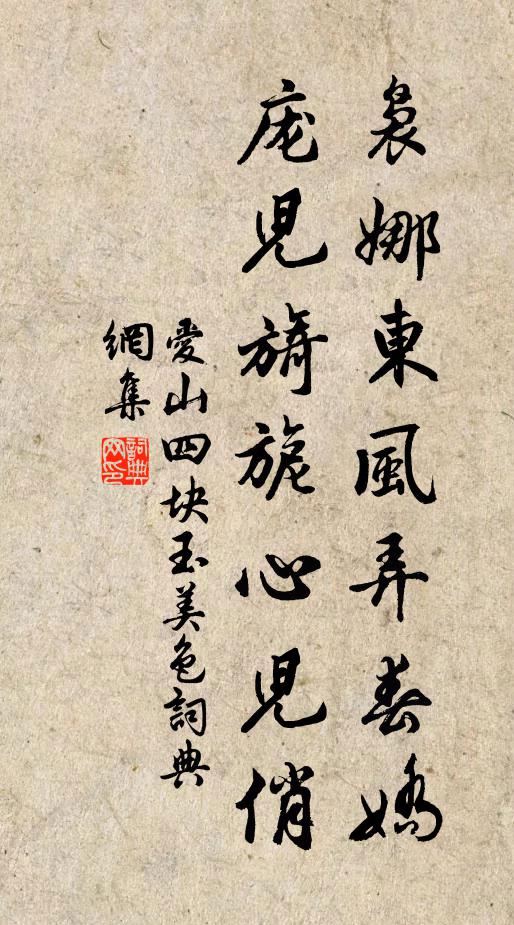 裊娜東風弄春嬌
庞児旖旎心児俏
愛山四块玉美色詞典
網集
詞典网印